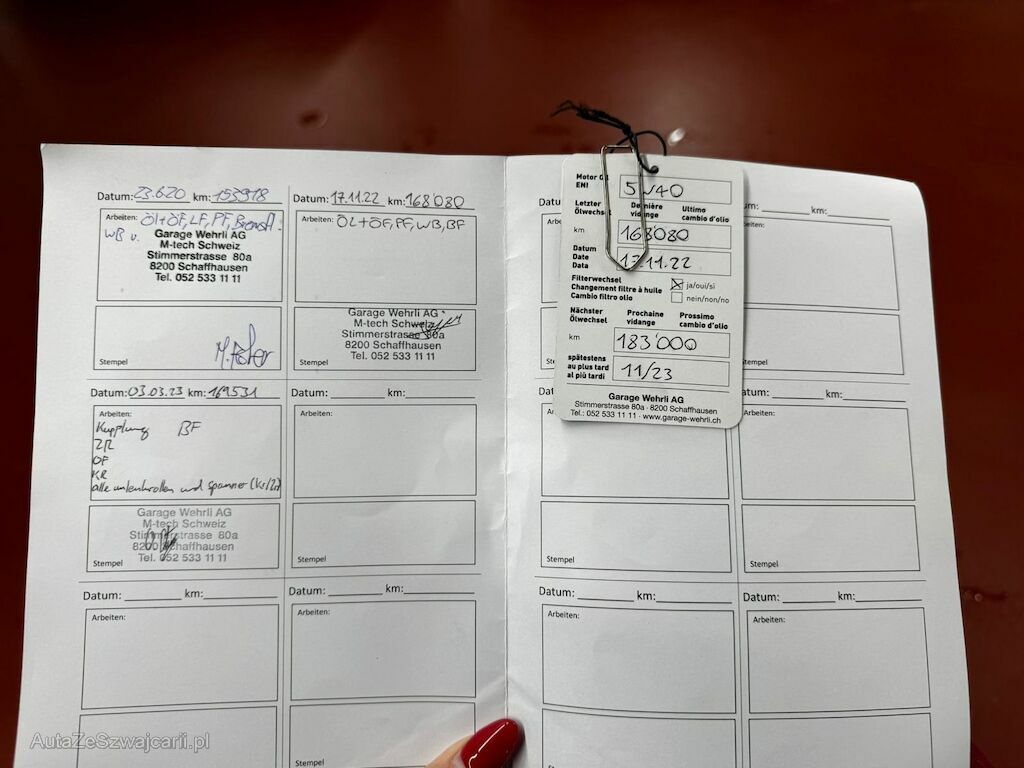 Datum: 23.6.20 km: 153918
Arbeiten: Öl+ÖF, LF, PF, Bremsfl.
WB u.
Garage Wehrli AG
M-tech Schweiz
Stimmerstrasse 80a
8200 Schaffhausen
Tel. 052 533 11 11
Stempel
Datum: 17.11.22 km: 168'080
Arbeiten: ÖL+ÖF, PF, WB, BF
Garage Wehrli AG
M-tech Schweiz
Stimmerstrasse 80a
8200 Schaffhausen
Tel. 052 533 11 11
Stempel
Datum: 03.03.23 km: 169531
Arbeiten:
Kupplung BF
ZR
OF
KR
alle umlenkrollen und spanner (Kr/Zr)
Garage Wehrli AG
M-tech Schweiz
Stimmerstrasse 80a
8200 Schaffhausen
Tel. 052 533 11 11
Stempel
Datum: km:
Arbeiten:
Stempel
Datum: km:
Arbeiten:
Datum: km:
Arbeiten:
Stempel
Motor
ENI
5W40
Letzter Dernière Ultimo
Ölwechsel vidange cambio d'olio
km 168'080
Datum
Date
Data
17.11.22
Filterwechsel
Changement filtre à huile
Cambio filtro olio
ja/oui/si
nein/non/no
Nächster Prochaine Prossimo
Ölwechsel vidange cambio d'olio
km 183'000
spätestens
au plus tard
al più tardi
11/23
Garage Wehrli AG
Stimmerstrasse 80a · 8200 Schaffhausen
Tel.: 052 533 11 11 · www.garage-wehrli.ch
km:
Stempel
km:
Stempel
Datum: km:
Arbeiten:
Stempel
Datum: km:
Arbeiten:
Datum: km:
Arbeiten:
AutaZeSzwajcarii.pl